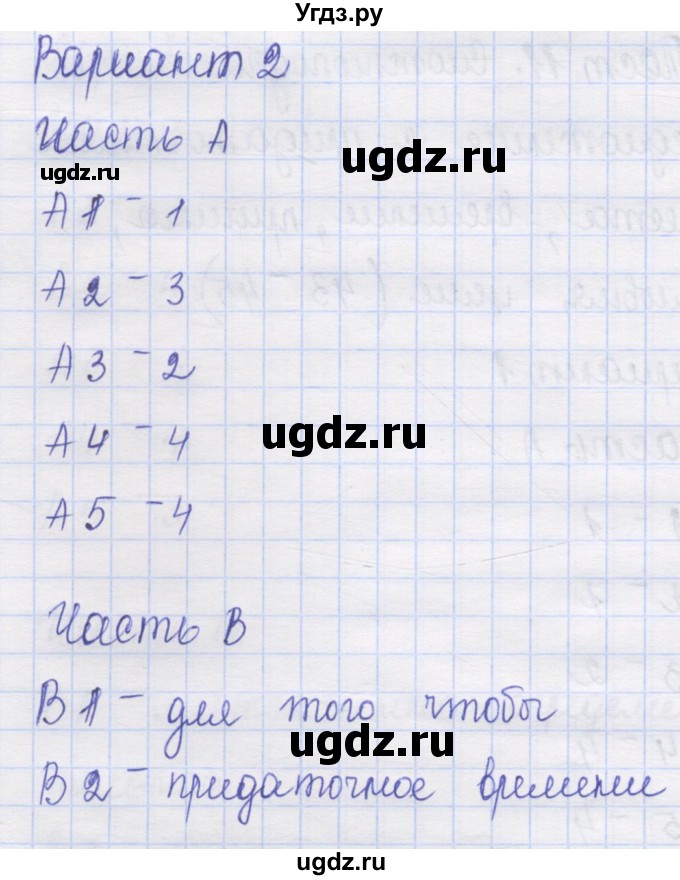 Угдз.ру
Вариант 2
Часть А
ugdz.ru
ugdz.ru
А1 - 1
А2 - 3
А3 - 2
А4 - 4
ugdz.ru
А5 - 4
Часть В
В1 - для того чтобы
ugdz.ru
В2 - придаточное времени
ugdz.ru